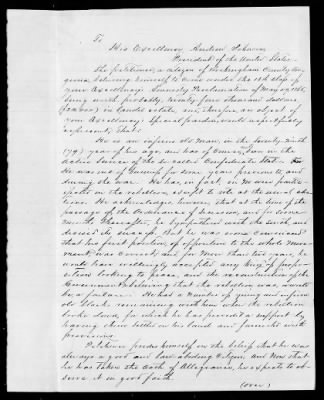 To
His Excellency Andrew Johnson
President of the United States
The petitioner, a citizen of Rockingham County Vir-
ginia believing himself to come under the 13th clause of
your Excellency's Amnesty Proclamation of May 29, 1865,
being worth probably, twenty four thousand dollars
in taxable estate, and, therefore an object of
your Excellency's special pardon, would respectfully
represent, That:
He is an infirm old man, in the seventy ninth
(79th) year of his age, and has of course, been in the
active service of the so called Confederate States.
He was out of for some years previous to, and
during the war. He has, in fact, in no wise partici-
pated in the rebellion, except to vote at the usual elec-
tions. He acknowledges, however, that at the time of
the passage of the Ordinance of Secession, and for some
months thereafter, he sympathized with the South and
desired its success. But he was soon convinced
that his first position, of opposition to the whole move-
ment was correct, and for more than two years, he
would have willingly accepted any kind of propo-
sition looking to peace, and the reconstruction of the
Government believing that the rebellion was, would
be, a failure. He had a number of young and infirm
old blacks remaining with him when the rebellion
broke down, for which he has provided a support by
having them settled on his land and furnished with
provisions.
Petitioner prides himself in the belief that he was
always a good and law abiding citizen, and now that
he has taken the oath of Allegiance, he expects to ob-
serve it in good faith.
(over)